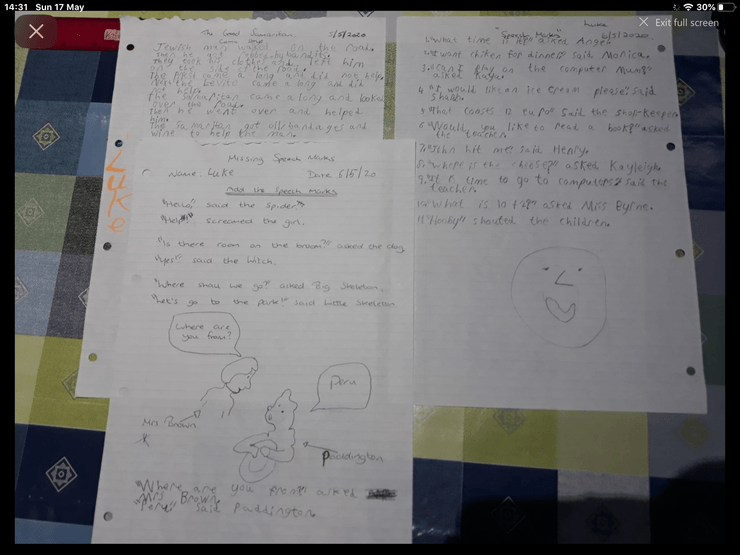 14:31 Sun 17 May
30%
Exit full screen
The Good Samaritan
5/5/2020
Jewish man walked on the road.
they took his clothes and left him
on the side of the road.
not help.
The Samaritan came along and looked
over the road.
Then he went over and helped
him.
The Samaritan got oil bendages and
wine to help the man.
LUKE
Missing Speech Marks
Name: Luke
Date 6/5/20
Add the Speech Marks
"Hello," said the spider.
"Help!" screamed the girl.
"Is there room on the broom?" asked the dog.
"Yes!" said the witch.
"Where shall we go?" asked Big Skeleton.
"Let's go to the park!" said Little Skeleton
Where are
you from?
Peru
Mrs Brown
Paddington
"Where are you from" asked
Mrs Brown.
"Peru" said Paddington.
Luke
"Speech Marks"
6/5/2020.
1. "What time is it?" asked Angel.
said Monica.
3. on the computer Mum?"
asked Kaya.
4. would like an ice cream please" said
5. said the shop-keeper.
6. "Would you like to read a book?" asked
the teacher.
7. hit me" said Henry.
8. "Where is the cheese?" asked Kayleigh.
9. "It is time to go to computers" said the
teacher.
10. "What is asked Miss Byrne.
11. shouted the children.